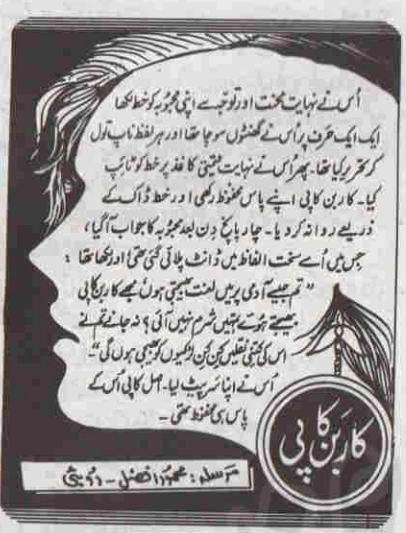 اُس نے نہایت محنت اور توجہ سے اپنی محبوبہ کو خط لکھا
ایک ایک حرف پر اُس نے گھنٹوں سوچا تھا اور ہر لفظ ناپ تول
کر تحریر کیا تھا۔ پھر اُس نے نہایت قیمتی کاغذ پر خط کو ٹائپ
کیا۔ کاربن کاپی اپنے پاس محفوظ رکھی اور خط ڈاک کے
ذریعے روانہ کر دیا۔ چار پانچ دن بعد محبوبہ کا جواب آگیا،
جس میں اُسے سخت الفاظ میں ڈانٹ پلائی گئی تھی اور لکھا تھا :
"تم جیسے آدمی پر میں لعنت بھیجتی ہوں، مجھے کاربن کاپی
بھیجتے ہوئے تمہیں شرم نہیں آئی؟ نہ جانے تم نے
اس کی کتنی نقلیں کن کن لڑکیوں کو بھیجی ہوں گی"۔
اُس نے اپنا سر پیٹ لیا۔ اصل کاپی اُس کے
پاس ہی محفوظ تھی۔
کاربن کاپی
مرسلہ : محمود افضل -